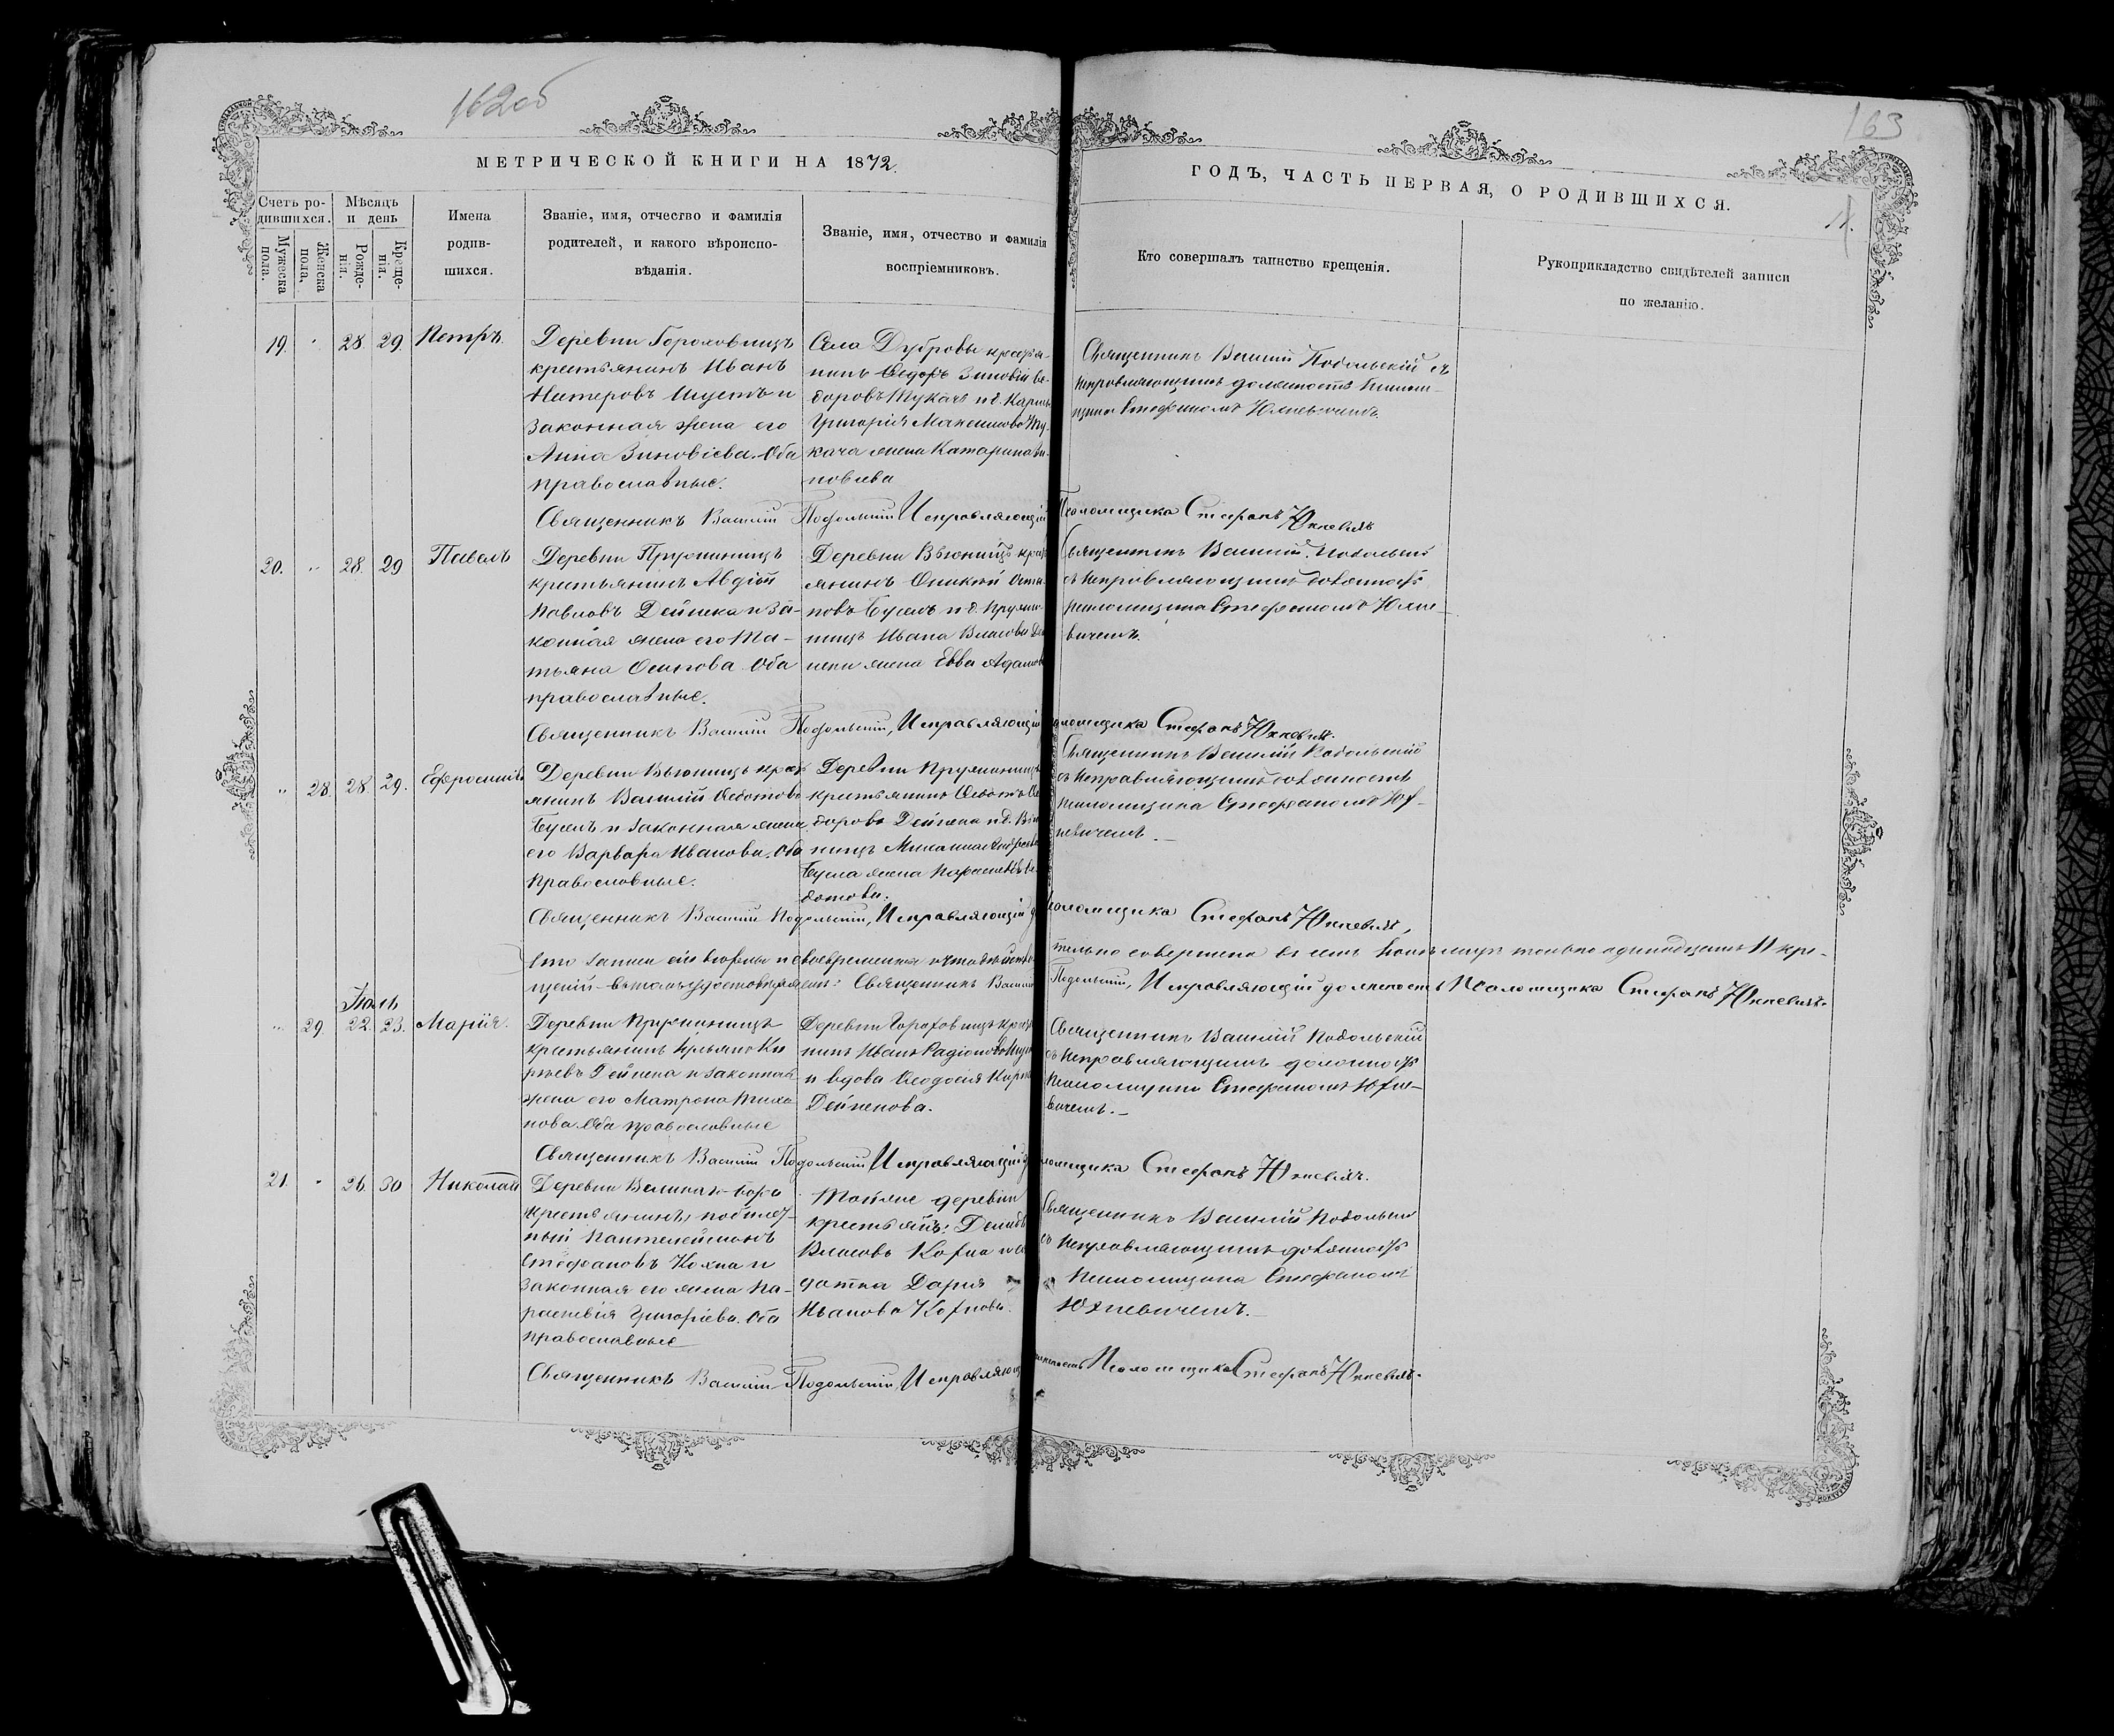 162об
163
МЕТРИЧЕСКОЙ КНИГИ НА 1872.
ГОДЪ, ЧАСТЬ ПЕРВАЯ, О РОДИВШИХСЯ.
11.
Счетъ ро-
дившихся.
Мужеска
пола.
Женска
пола,
Мѣсяцъ
и день
Рожде-
нія.
Креще-
нія.
Имена
родив-
шихся.
Званіе, имя, отчество и фамилія
родителей, и какого вѣроиспо-
вѣданія.
Званіе, имя, отчество и фамилія
воспріемниковъ.
Кто совершалъ таинство крещенія.
Рукоприкладство свидѣтелей записи
по желанію.
19. 28. 29. Петръ.
Деревни Гороховищъ
крестьянинъ Иванъ
законная жена его
Анна Зиновіева. Оба
православные.
Села Дубровы крестья-
нинъ Федоръ Зиновій Ѳе-
доровъ Тукачъ и д.
Григорія Максимова Ту-
кача жена Катарина Зи-
новіева
Священникъ Василій Подольскій съ
исправляющимъ должность Псалом-
щика Стефаномъ Юхневичемъ.
Священникъ Василій Подольскій Исправляющій Псаломщика Стефанъ Юхневичъ
20. 28. 29 Павелъ
Деревни Пружинищъ
крестьянинъ Авдій
Павловъ Дейнека и за-
конная жена его Та-
тьяна Осипова. Оба
православные.
Деревни Вьюнищъ крест
янинъ Оникій Оста-
повъ Бусель и д. Пружи-
нищъ Ивана Власова Дей
неки жена Евва Адамов
Священникъ Василій Подольскій
съ исправляющимъ должность
псаломщика Стефаномъ Юхне-
вичемъ.
Священникъ Василій Подольскій, Исправляющій Псаломщика Стефанъ Юхневичъ.
28. 28. 29. Ефросинія
Деревни Вьюнищъ крест
янинъ Василій Ѳедотовъ
Бусель и законная жена
его Варвара Иванова. Оба
православные.
Деревни Пружинищъ
крестьянинъ Ѳедотъ Ѳе
доровъ Дейнека и д. Вью
нищъ Михаила Андреева
Бусла жена Параскева Ѳе-
дотова.
Священникъ Василій Подольскій
съ исправляющимъ должность
псаломщика Стефаномъ Юх-
невичемъ.
Священникъ Василій Подольскій, Исправляющій Псаломщика Стефанъ Юхневичъ,
Что записи сіи вѣрны и своевременны и что дѣйствительно совершена въ семъ мѣсяцѣ только одинадцать 11 кре-
щеній въ томъ удостовѣряемъ: Священникъ Василій Подольскій, Исправляющій должность Псаломщика Стефанъ Юхневичъ.
Іюль
29. 22. 23. Марія.
Деревни Пружинищъ
крестьянинъ
Дейнека и законная
жена его Матрона Тихо
нова Оба православные
Деревни Гороховищъ крестья
нинъ Иванъ Радіоновъ
и вдова Ѳеодосія
Дейнекова.
Священникъ Василій Подольскій
съ исправляющимъ должность
псаломщика Стефаномъ Юхне-
вичемъ.
Священникъ Василій Подольскій Исправляющій Псаломщика Стефанъ Юхневичъ.
21. 26. 30 Николай
Деревни Великаго-бора
крестьянинъ,
Пантелеймонъ
Стефановъ Кохна и
законная его жена Па-
раскевія Григоріева. Оба
православные
Тойже деревни
крестьян:
Власовъ Кохна и сол
датка Дарія
Иванова Кохнова.
Священникъ Василій Подольскій
съ исправляющимъ должность
псаломщика Стефаномъ
Юхневичемъ.
Священникъ Василій Подольскій, Исправляющ должность Псаломщика Стефанъ Юхневичъ.